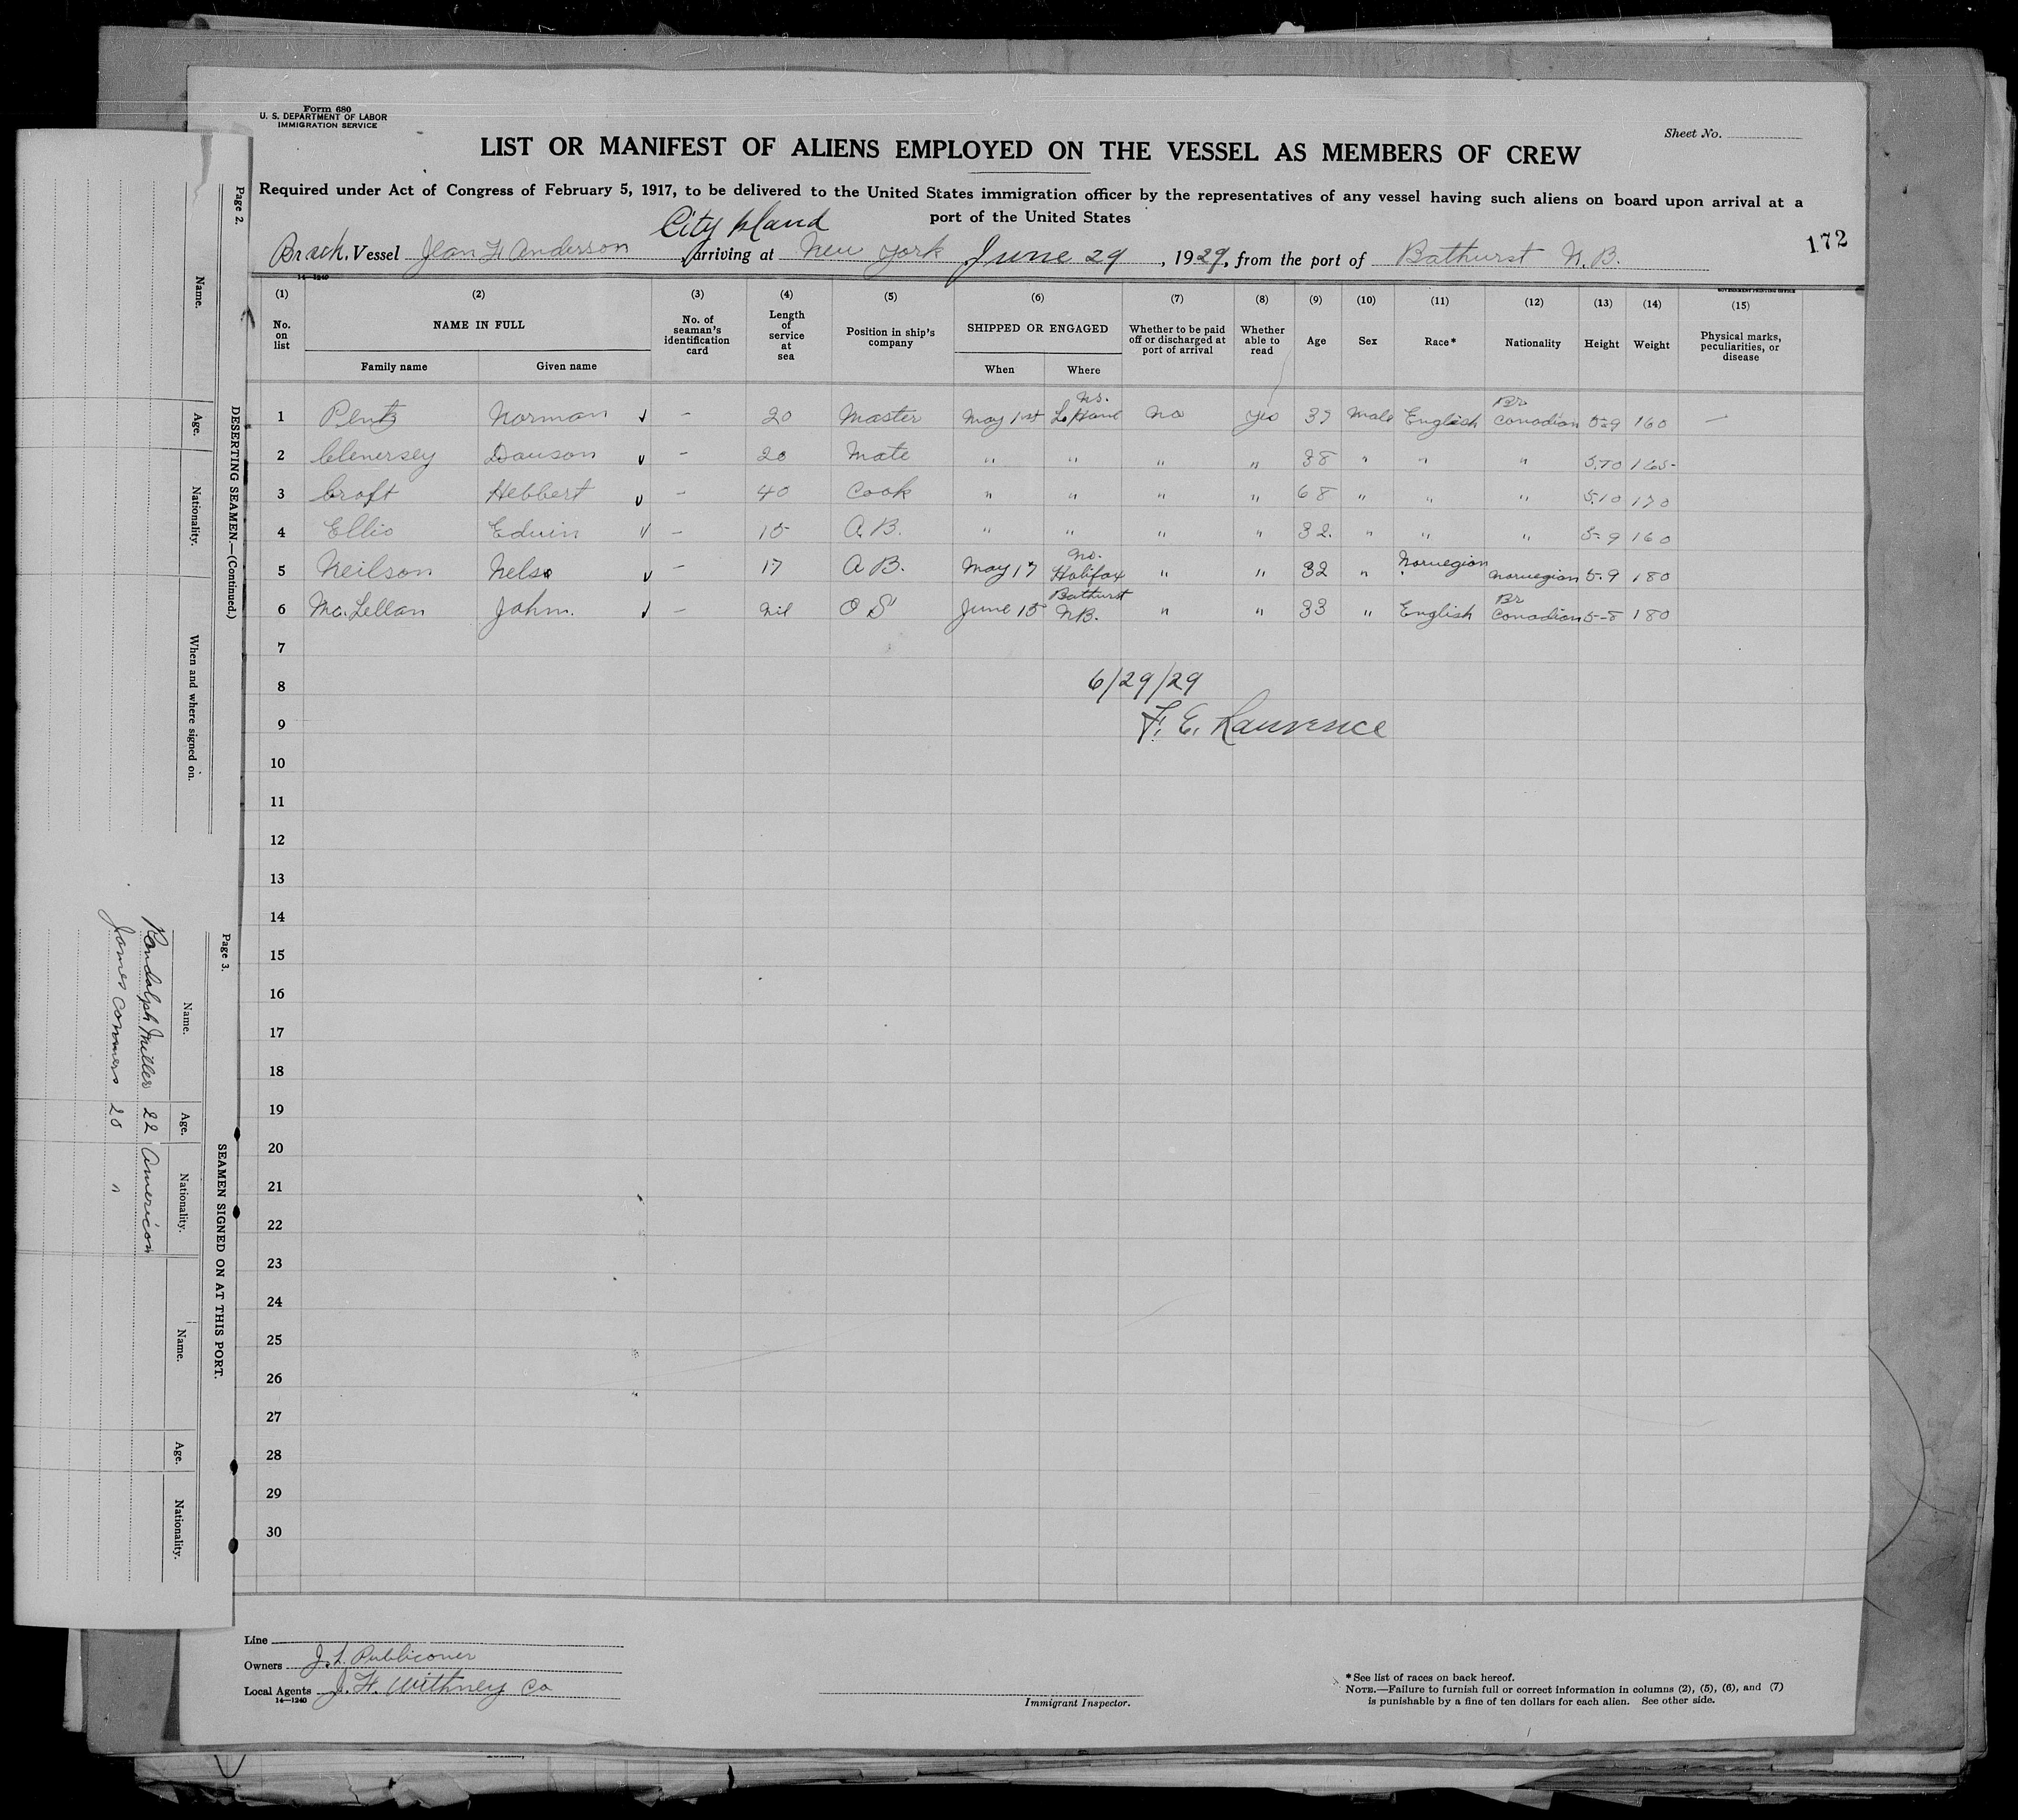 Form 680
U. S. DEPARTMENT OF LABOR
IMMIGRATION SERVICE
Sheet No.
LIST OR MANIFEST OF ALIENS EMPLOYED ON THE VESSEL AS MEMBERS OF CREW
Required under Act of Congress of February 5, 1917, to be delivered to the United States immigration officer by the representatives of any vessel having such aliens on board upon arrival at a
port of the United States
City Island
172
Vessel Jean F. Anderson, arriving at New York June 29, 1929, from the port of Bathurst N.B.
14—1240
GOVERNMENT PRINTING OFFICE
(1) No. on list
(2) NAME IN FULL Family name Given name
(3) No. of seaman's identification card
(4) Length of service at sea
(5) Position in ship's company
(6) SHIPPED OR ENGAGED When Where
(7) Whether to be paid off or discharged at port of arrival
(8) Whether able to read
(9) Age
(10) Sex
(11) Race*
(12) Nationality
(13) Height
(14) Weight
(15) Physical marks, peculiarities, or disease
1 Pentz Norman ✓ – 20 Master May 1st N.S. No Yes 37 Male English Br Canadian 5-9 160 –
2 Clenersey Dawson – 20 Mate " " " " 38 " " " 5.10 165
3 Croft Hebbert – 40 Cook " " " " 68 " " " 5.10 170
4 Ellis Edwin – 15 A.B. " " " " 32 " " " 5-9 160
5 Neilson Nels – 17 A.B. May 17 Halifax " " 32 " Norwegian Norwegian 5-9 180
6 Mc.Lellan John. ✓ – nil O S June 15 Bathurst N.B. " " 33 " English Br Canadian 5-8 180
7
8
6/29/29
9
F. E. Lawrence
10
11
12
13
14
15
16
17
18
19
20
21
22
23
24
25
26
27
28
29
30
Line
Owners
Local Agents J. H. Withney Co
14—1240
Immigrant Inspector.
*See list of races on back hereof.
NOTE.—Failure to furnish full or correct information in columns (2), (5), (6), and (7)
is punishable by a fine of ten dollars for each alien. See other side.
Page 2.
DESERTING SEAMEN.—(Continued.)
Name. Age. Nationality. When and where signed on.
Page 3.
SEAMEN SIGNED ON AT THIS PORT.
Name. Age. Nationality. Name. Age. Nationality.
Randolph Miller 22 American
James Conners 20 "